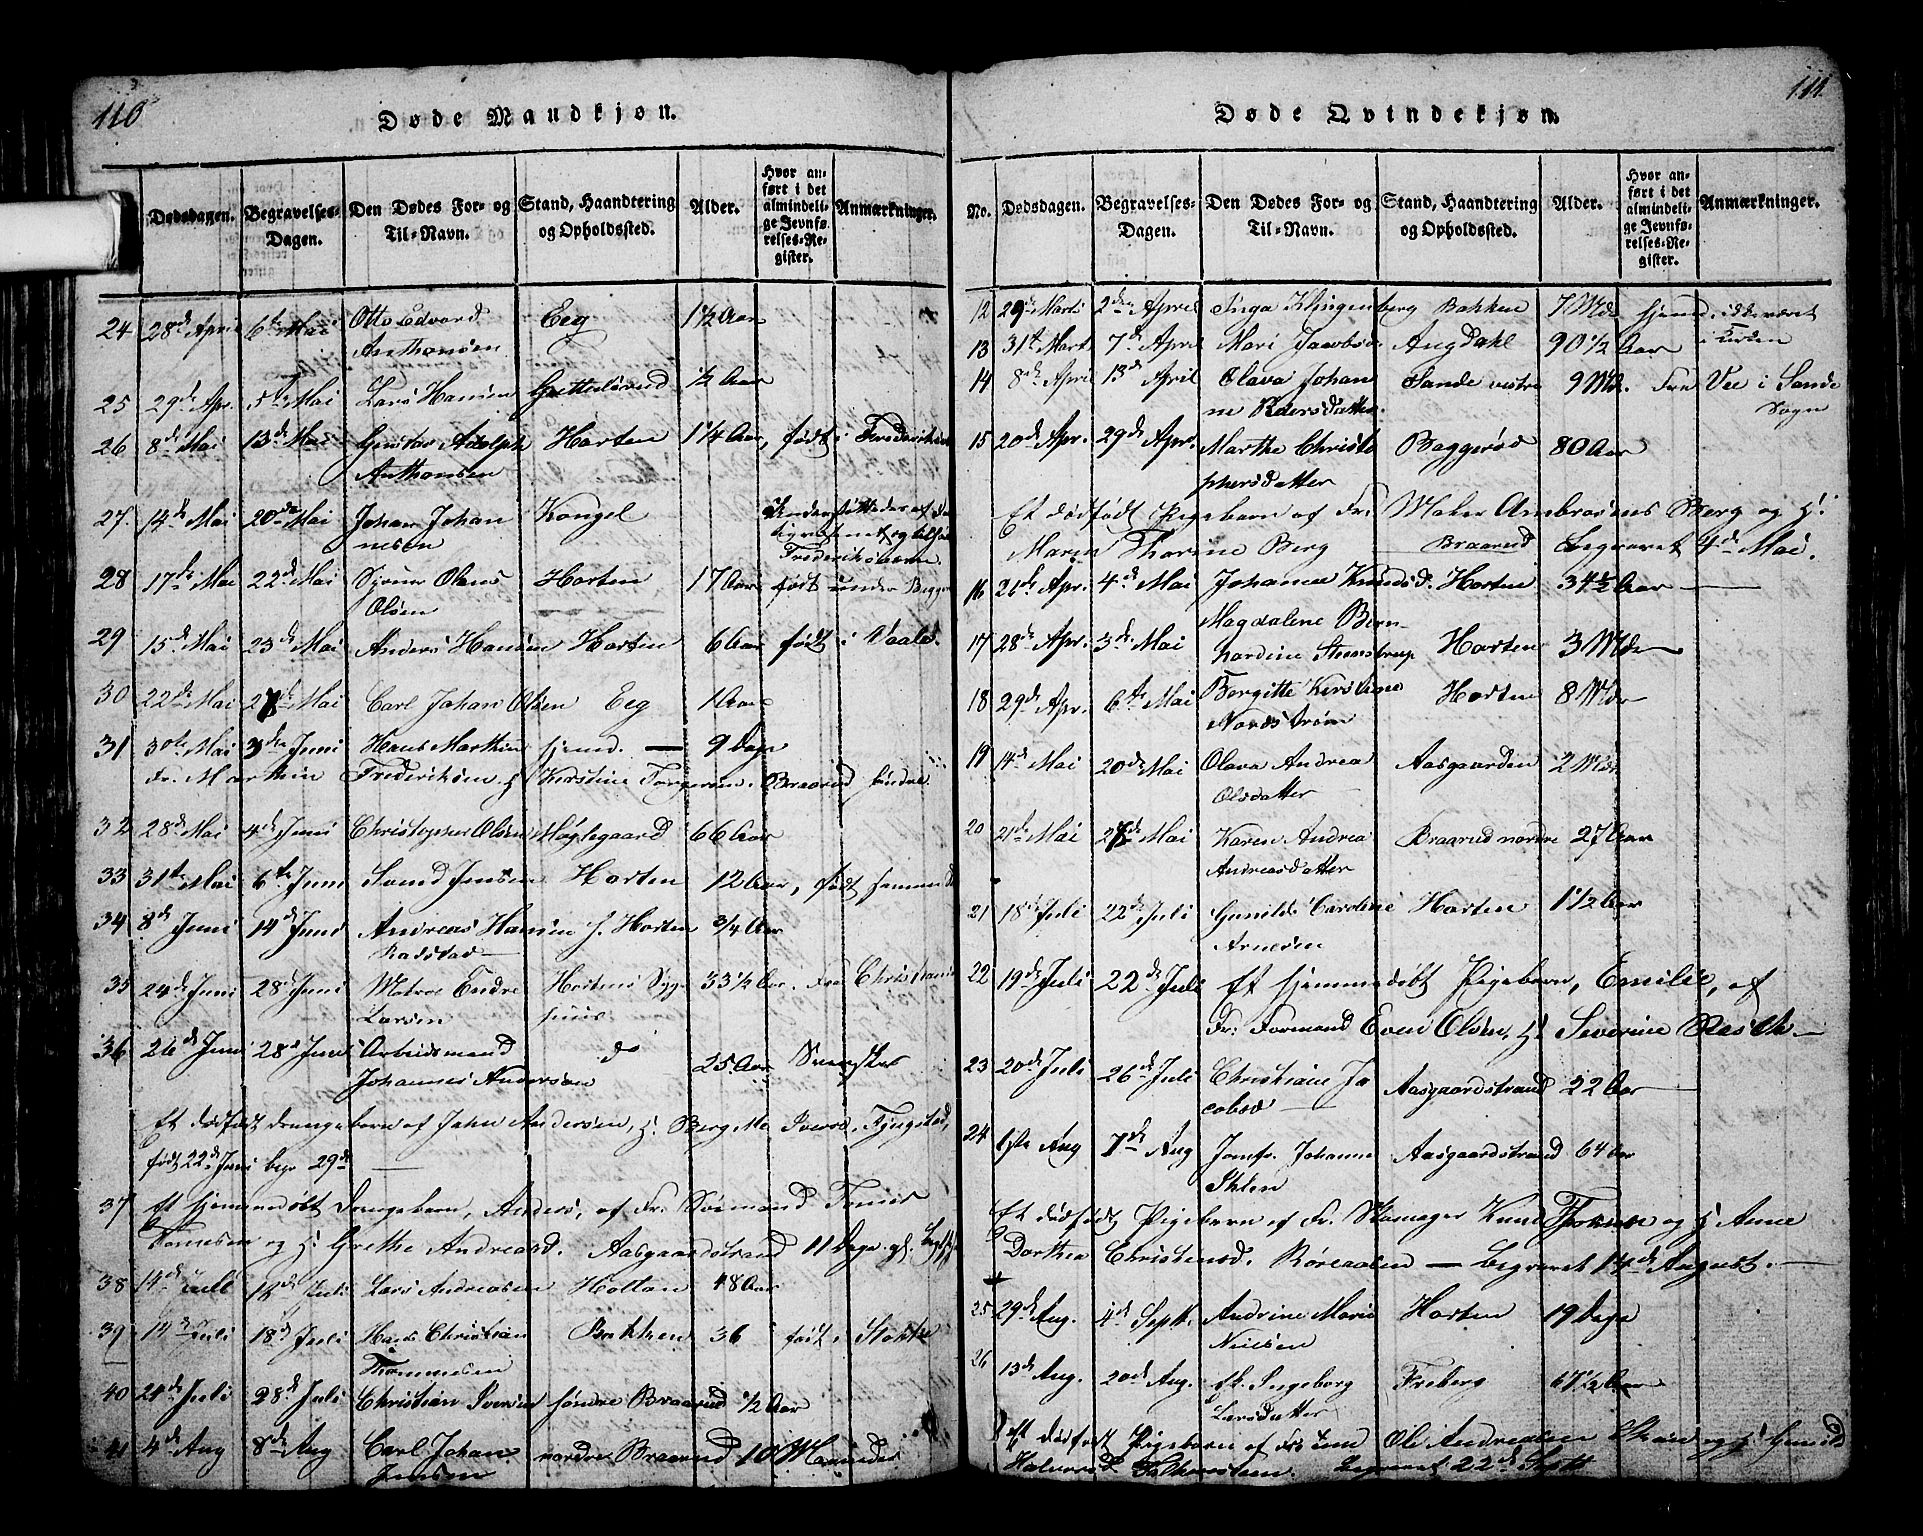 110
Døde Mandkjøn.
Dødsdagen. Begravelses-Dagen. Den Dødes For- og Til-Navn. Stand, Haandtering og Opholdssted. Alder. Hvor anført i det almindelige Jevnførelses-Register. Anmærkninger.
24 28de April 6te Mai Otto Edvard Eeg 1½ Aar
Anthonsen
25 29de Apr. 5te Mai Lars Hansen ½ Aar
26 8de Mai 13de Mai Gustav Adolph Horten 1¼ Aar, født i
Anthonsen
27 14de Mai 20de Mai Johan Johan Kongel
nesen
28 17de Mai 22de Mai Olaus Horten 17 Aar født under
Olsen
29 15de Mai 23de Mai Anders Hansen Horten 6 Aar født i Vaale
30 22de Mai 27de Mai Carl Johan Olsen Eeg 1 Aar
31 30te Mai 3die Juni Hans Marthin hjemd. — 9 Dage
Fr. Marthin Frederiksen, H. Kirstine Torgersen. Braarud søndre
32 28de Mai 4de Juni Christopher Olsen Møglegaard 66 Aar
33 31te Mai 6te Juni Svend Jensen Horten 12 Aar, født
34 8de Juni 14de Juni Andreas Hansen Horten ¾ Aar
35 24de Juni 28de Juni Matros Endre Hortens Syg 33½ Aar. Fra Christiania
Larsen huus
36 26de Juni 28de Juni Arbeidsmand do 25 Aar Svensker
Johannes Andersen
Et dødfødt drengebarn af John Andersen, H. Iversd.
født 22de Juni begr. 29de —
37 Et hjemmedøbt Drengebarn, Anders, af Fr. Sømand
og H. Grethe Andreasd. Aasgaardstrand 11 Dage gl.
38 14de Juli 18de Juli Lars Andreasen Holtan 48 Aar
39 14de Juli 18de Juli Hans Christian Bakken 36 født i Stokke
Thommesen
40 21de Juli 28de Juli Christian Iversen søndre Braarud ½ Aar
41 4de Aug 8de Aug Carl Johan nordre Braarud 10 Maaneder
Jensen
111
Døde Qvindekjøn.
No. Dødsdagen. Begravelses-Dagen. Den Dødes For- og Til-Navn. Stand, Haandtering og Opholdssted. Alder. Hvor anført i det almindelige Jevnførelses-Register. Anmærkninger.
12 29de Marts 2den April Inga Klingenberg Bakken 7 Mdr hjemd. ikke været
i Kirken
13 31te Marts 7de April Mari Jacobsd. Augdahl 90½ Aar
14 8de April 13de April Olava Johan Sande vestre 9 Mdr. Fra Vee i Sande
ne Sogn
15 20de Apr. 29de Apr. Marthe Christo Baggerød 80 Aar
phersdatter
Et dødfødt Pigebarn af Fr. Maler Ambrosius Berg og H.
Maren Thorine Berg Braarud begravet 4de Mai.
16 26de Apr. 4de Mai Johanne Knudsd. Horten 34½ Aar —
17 28de Apr. 3die Mai Magdalene Bern Horten 3 Mdr
hardine Steenstrup
18 29de Apr. 6te Mai Bergitte Kirstine Horten 8 Mdr
Nordstrøm
19 14de Mai 20de Mai Olava Andrea Aasgaarden 2 Mdr
Olsdatter
20 21de Mai 27de Mai Karen Andrea Braarud nordre 27 Aar
Andreasdatter
21 18de Juli 22de Juli Gunild Caroline Horten 1½ Aar
Arnesen
22 19de Juli 22de Juli Et hjemmedøbt Pigebarn, Emilie, af
Fr. Formand Even Olsen, H. Severine Rasch —
23 20de Juli 26de Juli Christiane Ja Aasgaardstrand 22 Aar
cobsd
24 1ste Aug 7de Aug Jomfr. Johanne Aasgaardstrand 64 Aar
Ihlen
Et dødfødt Pigebarn af Fr. Skomager Knud og H. Anne
Dorthea Christensd. — begravet 14de August. —
25 29de Aug. 4de Septbr. Andrine Marie Horten 19 Dage
Nielsen
26 13de Aug. 20de Aug. Ingeborg Freberg 67½ Aar
Larsdatter
Et dødfødt Pigebarn af Ole Andreasen og H. Gunild
Halvorsd. Falkensteen. begravet 22de Septbr